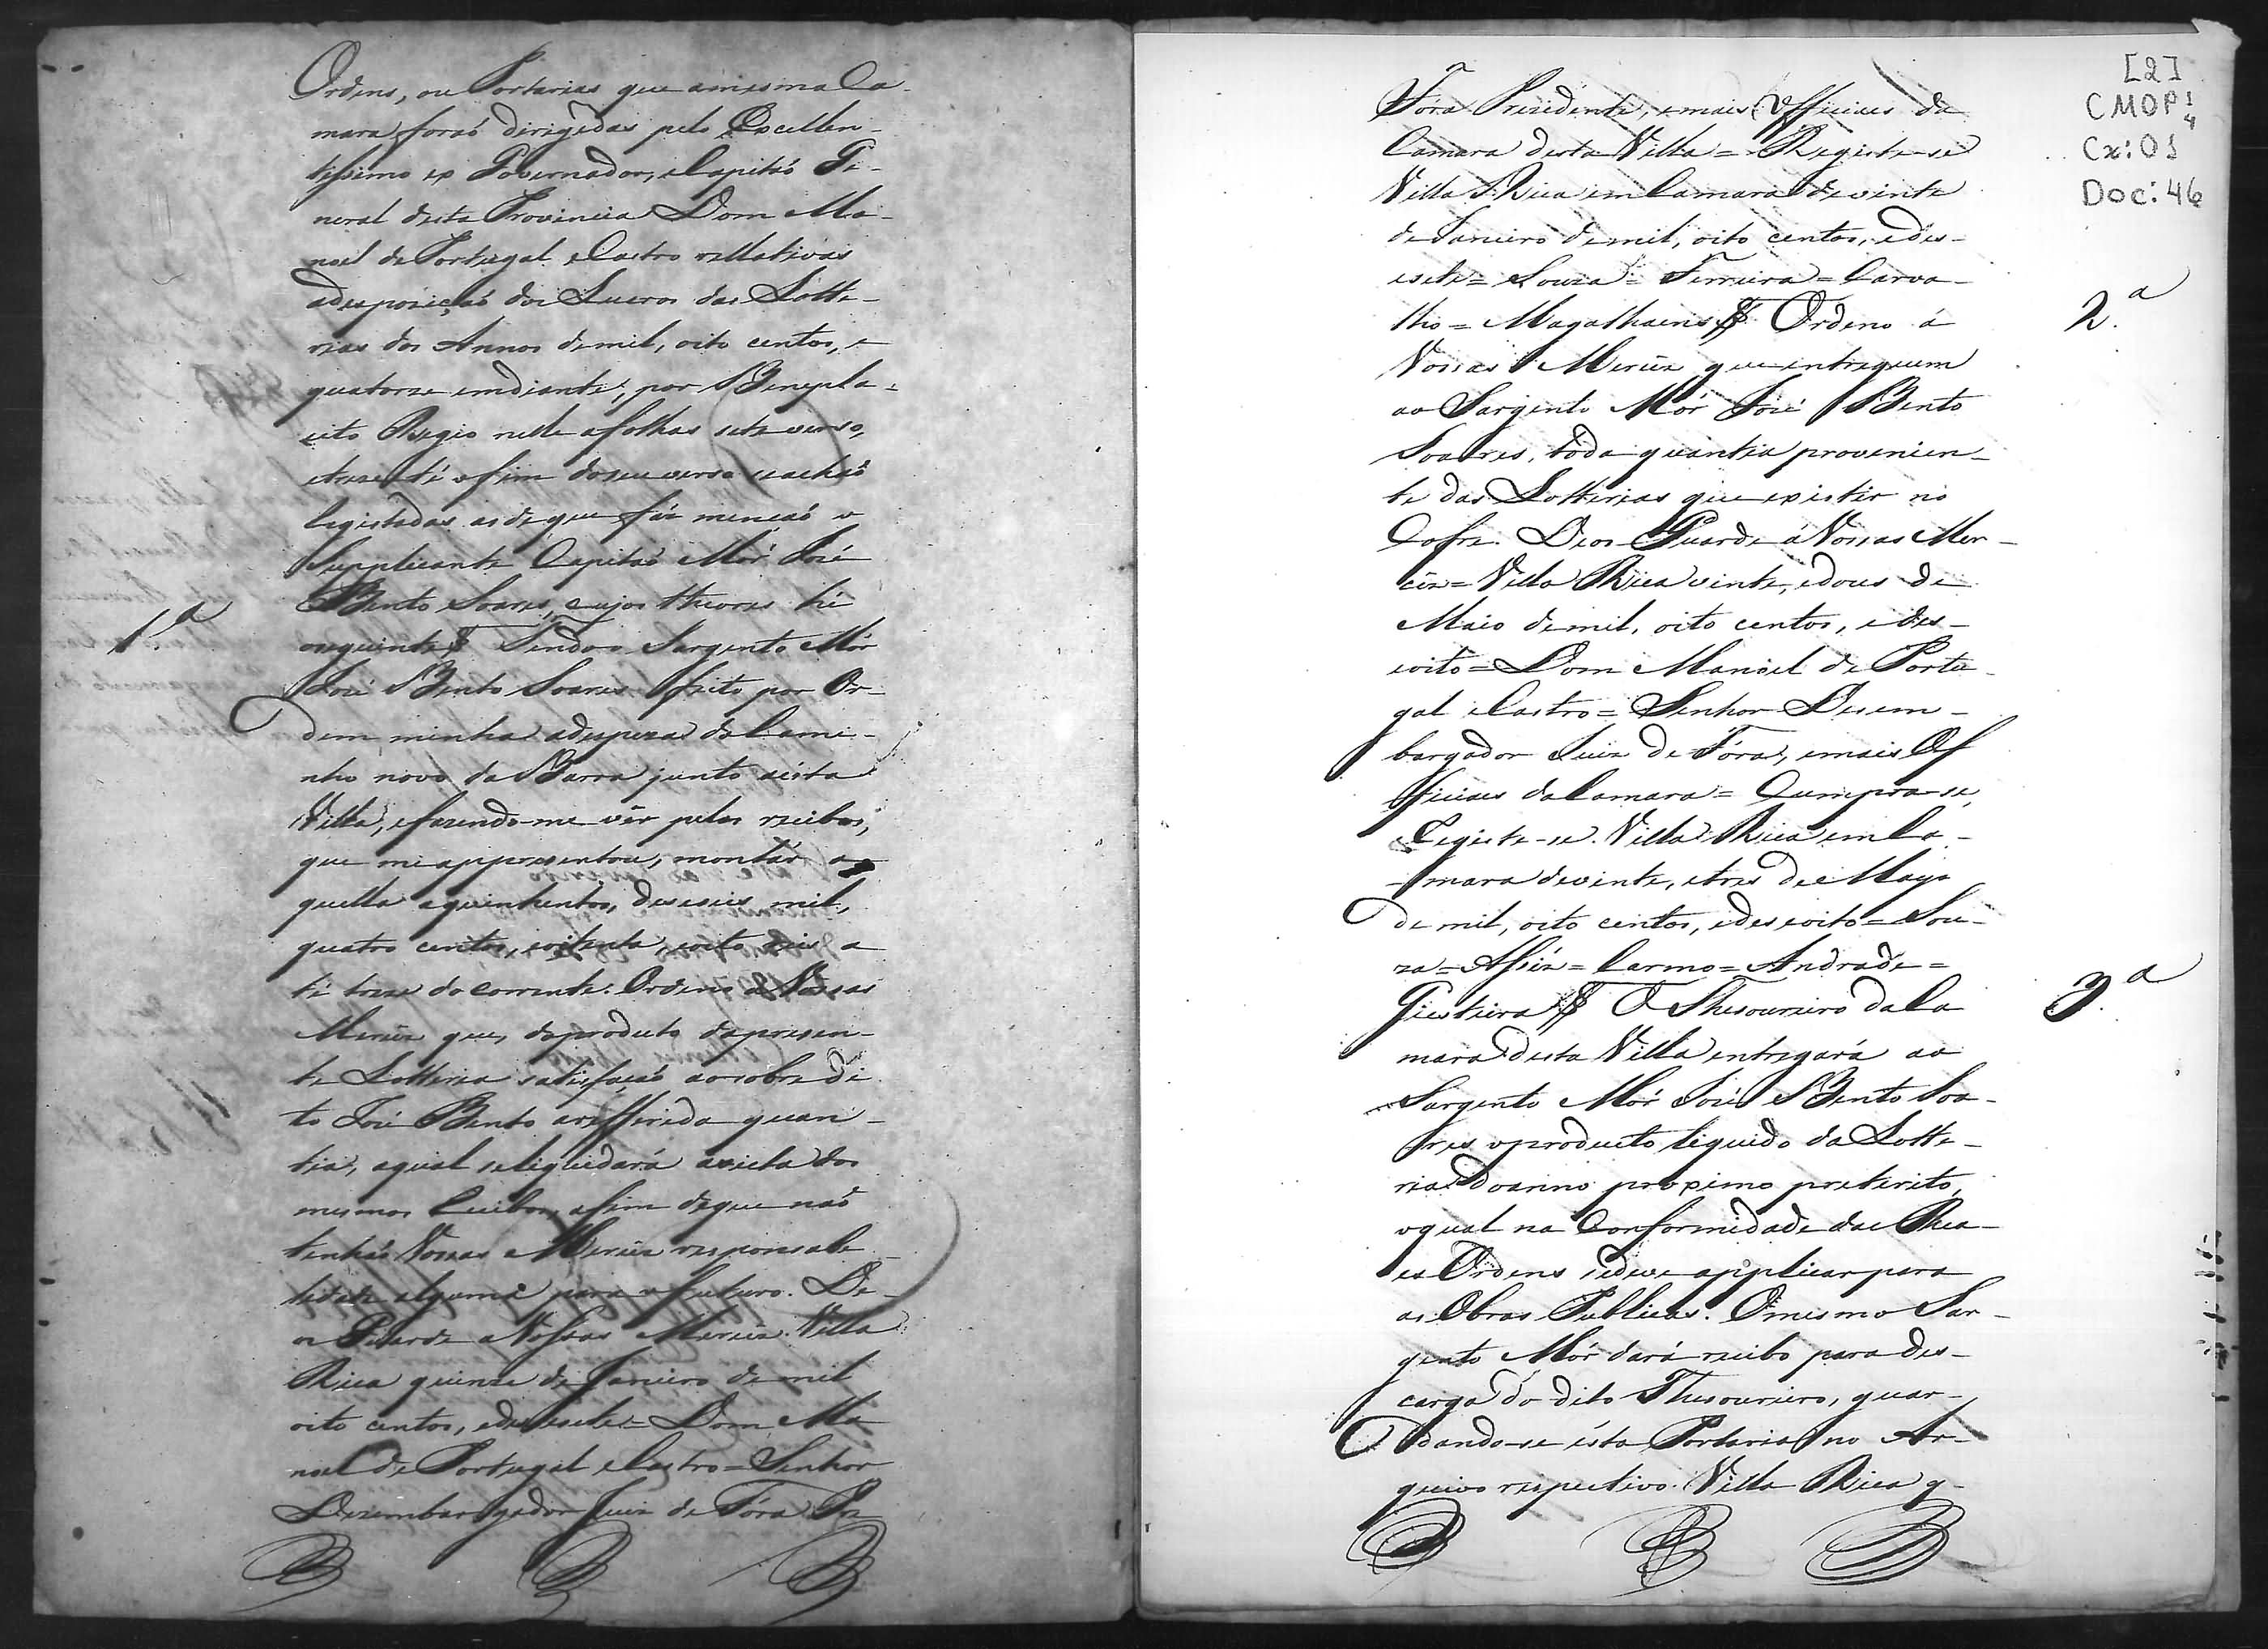 Ordens, ou Portarias que amesma Ca-
mara foraõ dirigedas pelo Excellen-
tissimo ex Governador, eCapitaõ Ge-
neral desta Provincia Dom Ma-
noel de Portugal eCastro rellativas
adesposiçaõ dos Lucros das Lotte-
rias dos Annos demil, oito centos, e
quatorze emdiante, por Benepla-
cito Regio nelle afolhas sete verso,
etreze té ofim doseu verso seachaõ
Registadas as de que fáz mençaõ o
Supplicante Capitaõ Mór José
Bento Soares, cujos theores hé
oseguinte
1.ª
Tendo o Sargento Mór
José Bento Soares feito por Or-
dem minha adespeza do Cami-
nho novo da Barra junto aésta
Villa, efazendo-me vêr pelos recibos,
que me appresentou, montár a-
quella aquinhentos, deseseis mil,
quatro centos, eoitenta, eoito reis a-
té treze do corrente. Ordeno a Vossas
Mercêz que, doproduto dapresen-
te Lotteria satisfaçaõ aosobredi-
to José Bento arefferida quan-
tia, aqual seliquidará avista dos
mesmos Recibos, afim deque naõ
tenhaõ Vossas Mercêz responsabe-
lidade alguma para ofuturo. De-
os Guarde a Vossas Mercêz. Villa
Rica quinze de Janeiro de mil
oito centos, edesesete = Dom Ma-
noel de Portugal eCastro = Senhor
Dezembargador Juiz de Fóra Pr
[2]
CMOP 1/4
Cx: 01
Doc: 46
Fora Prezidente, emais Officiaes da
Camara desta Villa = Registe-se
Villa Rica em Camara de vinte
de Janeiro demil, oito centos, edes-
esete = Souza = Ferreira = Carva-
lho = Magalhaens
2.ª
Ordeno á
Vossas Mercêz que entreguem
ao Sargento Mór José Bento
Soares, tôda quantia provenien-
te das Lotterias que existir no
Cofre. Deos Guarde á Vossas Mer-
cêz = Villa Rica vinte, edous de
Maio demil, oito centos, e des-
eoito = Dom Manoel de Portu-
gal eCastro = Senhor Desem-
bargador Juiz de Fóra, emais Of
fficiaes daCamara = Cumpra-se,
eRegiste-se. Villa Rica em Ca-
mara devinte, etres de Mayo
de mil, oito centos, edeseoito = Sou-
za = Assiz = Carmo = Andrade =
Giesteira
3.ª
O Thesoureiro daCa
mara desta Villa entregará ao
Sargento Mór José Bento Soa-
res oproducto liquido da Lotte-
ria doanno proximo preterito,
oqual na Conformidade das Rea-
es Ordens sedeve applicar para
as Obras Publicas. Omesmo Sar-
gento Mór dará recibo para des-
carga do dito Thesoureiro, guar-
dando-se ésta Portaria no Ar-
quivo respectivo. Villa Rica q-